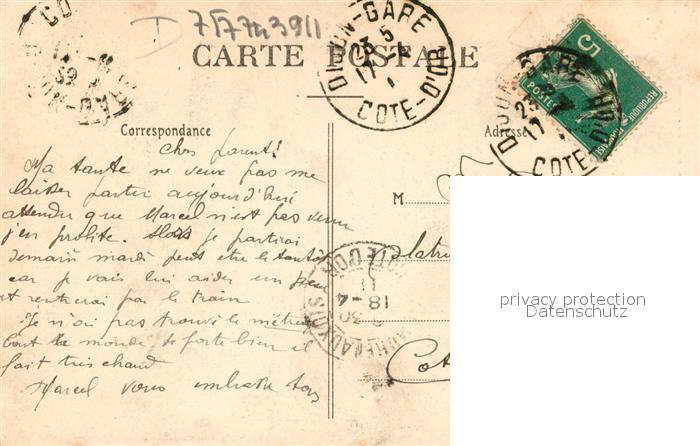 D 757743911
CARTE POSTALE
DIJON-GARE
23 5
17 -4
COTE-D'OR
DIJON-GARE
23
17
COTE-D'OR
5
POSTES
REPUBLIQUE FRANÇAISE
Correspondance
Adresse
Chers parents
Ma tante ne veux pas me
laisser partir aujourd'hui
attendu que Marcel n'est pas venu
j'en profite. Alors je partirai
demain mardi peut être le tantôt
car je vais lui aider un peu
et rentrerai par le train
Je n'ai pas trouvé le
tout le monde se porte bien il
fait très chaud
Marcel vous embrasse tous
M
COTE D'OR
11
18 -4
30
Cot
privacy protection
Datenschutz